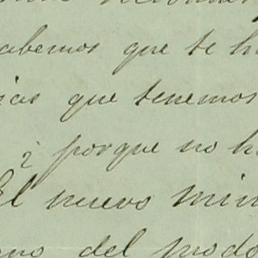 abemos que te h
ias que tenemos
¿ porque no h
El nuevo min
del prodo